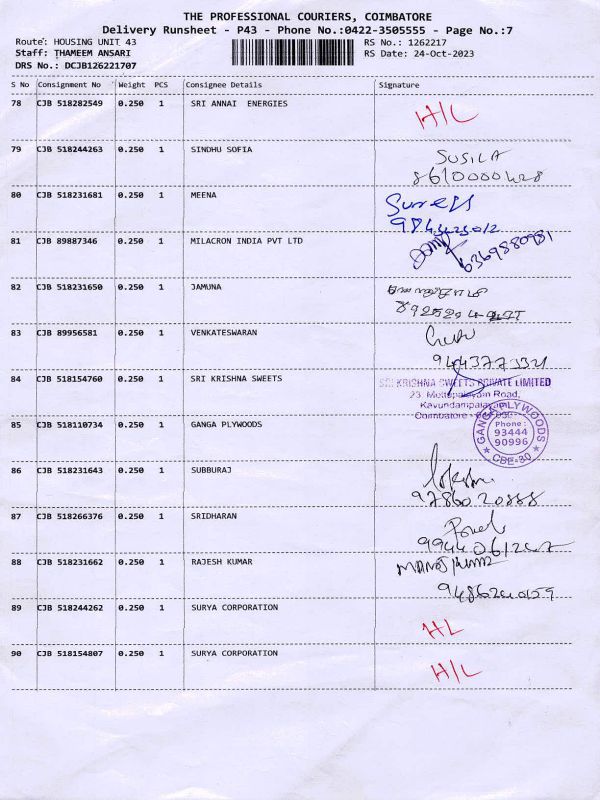 THE PROFESSIONAL COURIERS, COIMBATORE
Delivery Runsheet - P43 - Phone No.:0422-3505555 - Page No.:7
Route: HOUSING UNIT 43 RS No.: 1262217
Staff: THAMEEM ANSARI RS Date: 24-Oct-2023
DRS No.: DCJB126221707
S No Consignment No Weight PCS Consignee Details Signature
78 CJB 518282549 0.250 1 SRI ANNAI ENERGIES H/L
79 CJB 518244263 0.250 1 SINDHU SOFIA SUSILA
80 CJB 518231681 0.250 1 MEENA
81 CJB 89887346 0.250 1 MILACRON INDIA PVT LTD 6369880981
82 CJB 518231650 0.250 1 JAMUNA
83 CJB 89956581 0.250 1 VENKATESWARAN
9443773321
84 CJB 518154760 0.250 1 SRI KRISHNA SWEETS SRI KRISHNA SWEETS PRIVATE LIMITED
23, Mettupalayam Road,
Kavundampalayam
Coimbatore -
85 CJB 518110734 0.250 1 GANGA PLYWOODS GANGA PLYWOODS
Phone :
93444
90996
CBE-30
86 CJB 518231643 0.250 1 SUBBURAJ
97860 20888
87 CJB 518266376 0.250 1 SRIDHARAN
88 CJB 518231662 0.250 1 RAJESH KUMAR MANOJ KUMAR
89 CJB 518244262 0.250 1 SURYA CORPORATION HL
90 CJB 518154807 0.250 1 SURYA CORPORATION H/L